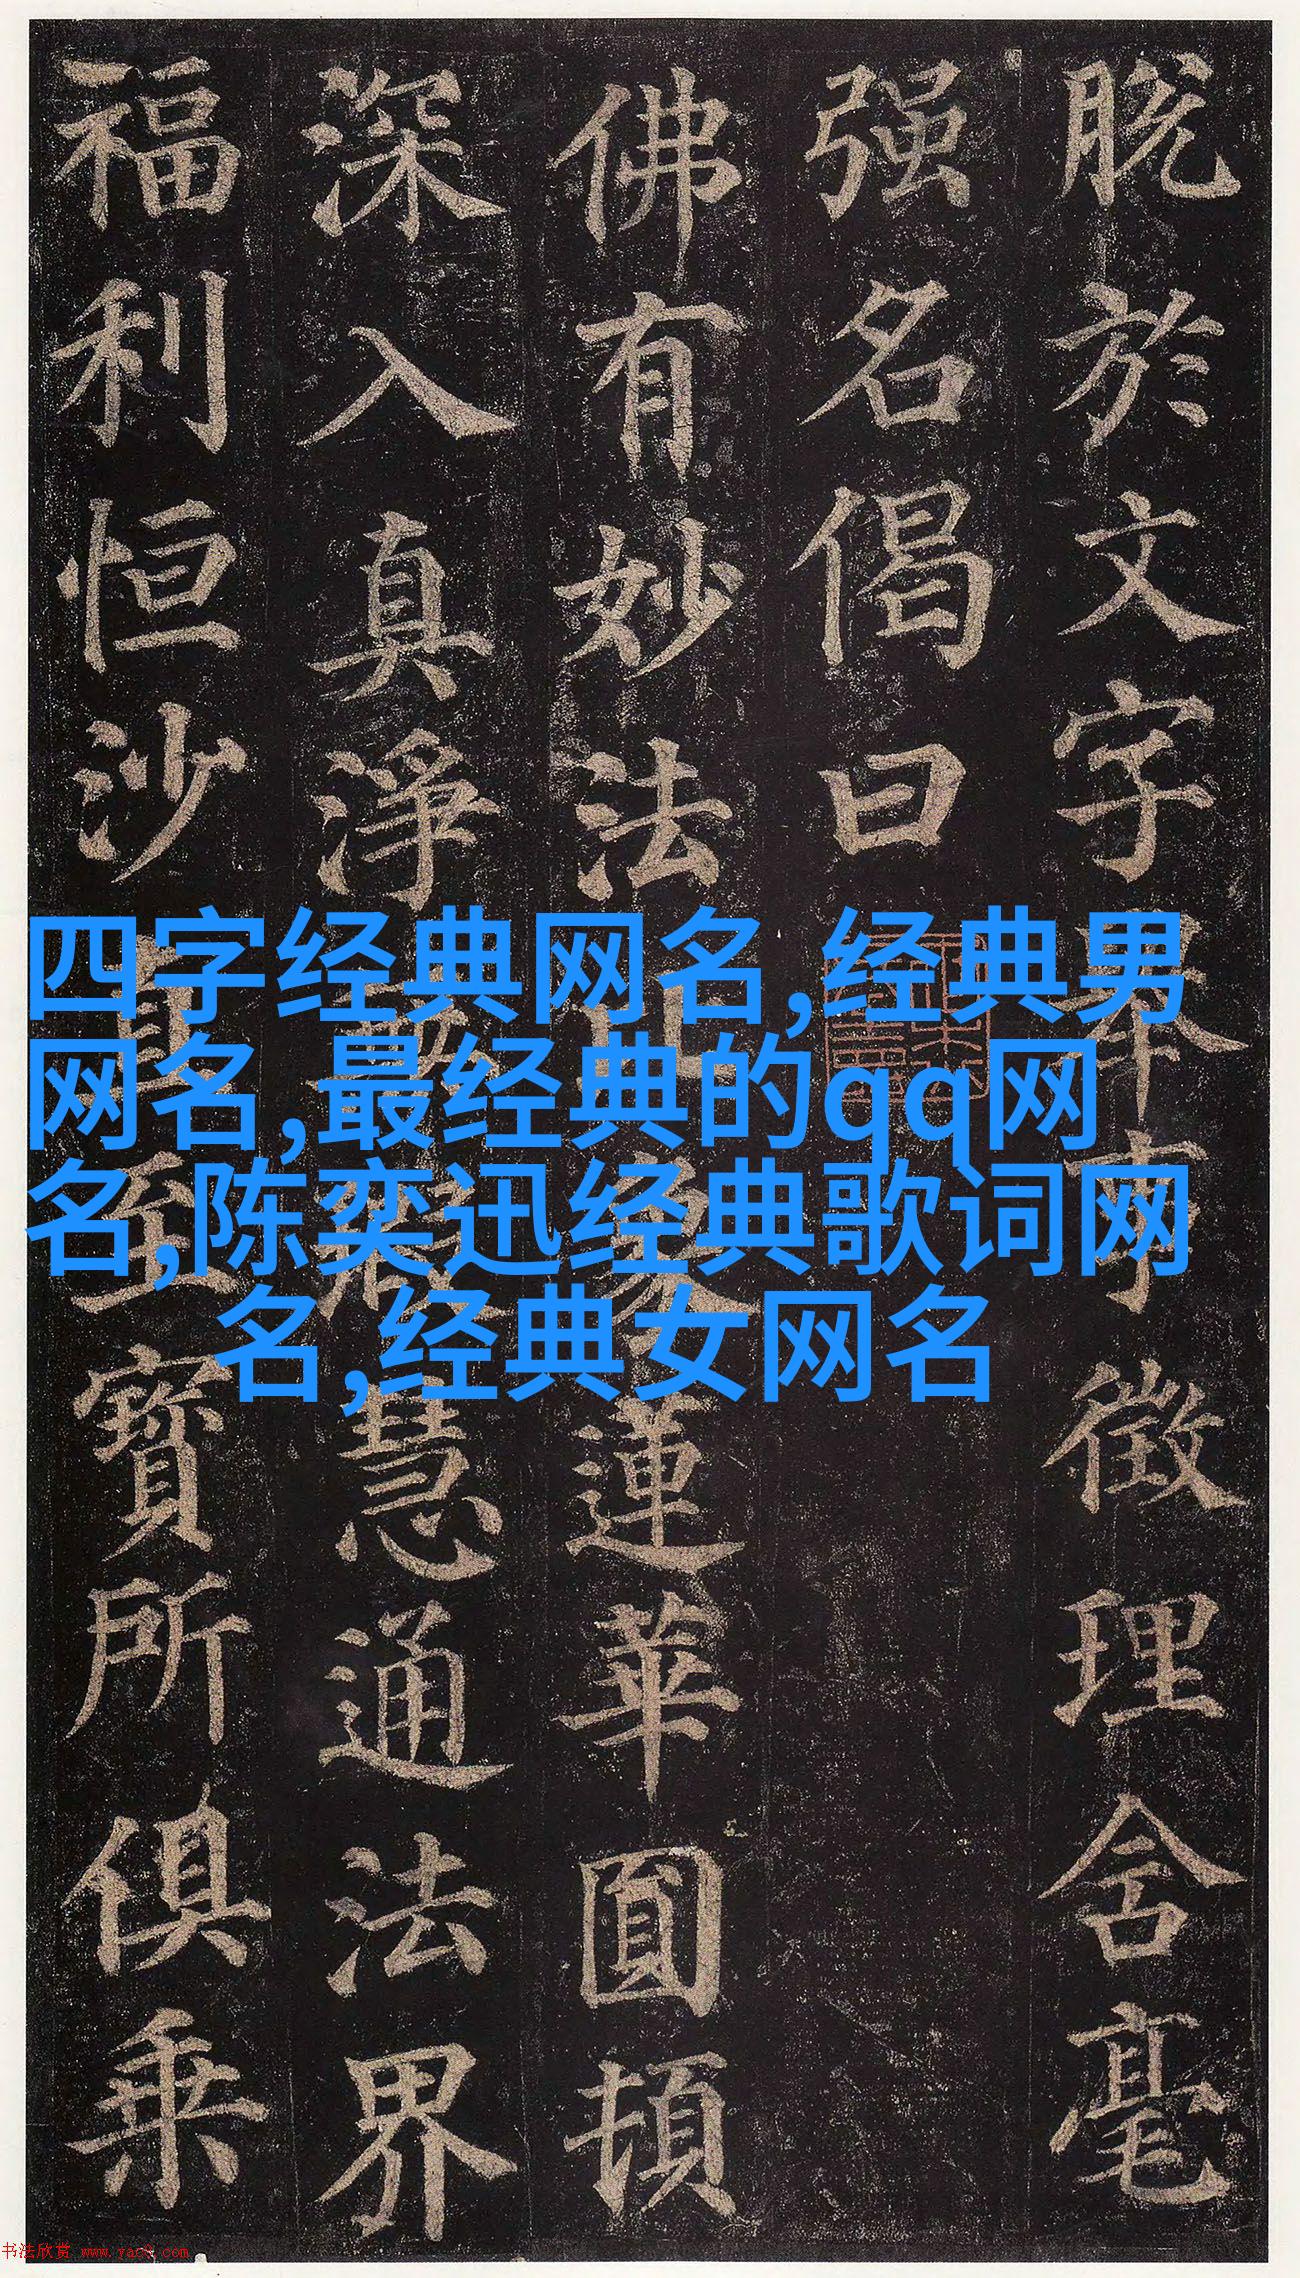 脱於文字徵理含毫
强名偈曰
佛有妙法蓮華圓頓
深入真淨慧通法界
福利恒沙至寶所俱乘
四字经典网名,经典男
网名,最经典的qq网
名,陈奕迅经典歌词网
名,经典女网名
书法欣赏 www.yac8.com